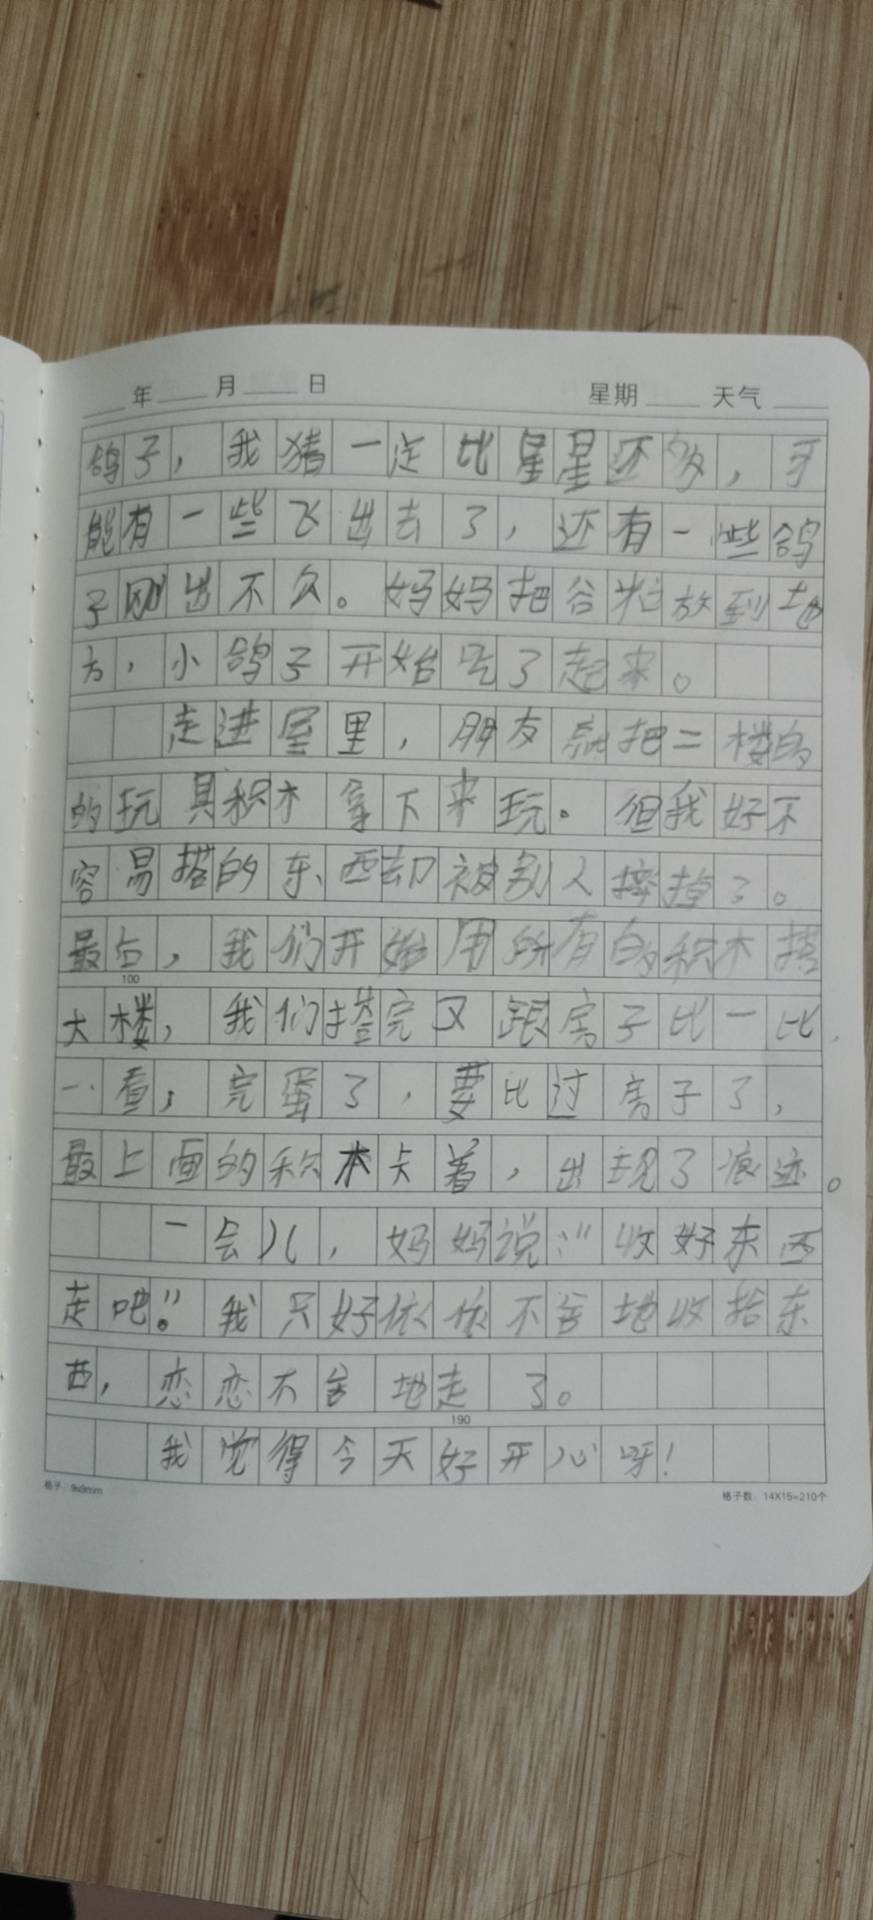 年 月 日 星期 天气
鸽子，我猪一定比星星还多，可
能有一些飞出去了，还有一些鸽
子刚出不久。妈妈把谷粒放到地
方，小鸽子开始吃了起来。
走进屋里，朋友就把二楼的
的玩具积木拿下来玩。但我好不
容易搭的东西却被别人摔掉了。
最后，我们开始用所有的积木搭
100
大楼，我们搭完又跟房子比一比，
一看，完蛋了，要比过房子了，
最上面的积木卡着，出现了痕迹。
一会儿，妈妈说：“收好东西
走吧。”我只好依依不舍地收拾东
西，恋恋不舍地走了。
190
我觉得今天好开心呀！
格子：9x9mm 格子数：14X15=210个